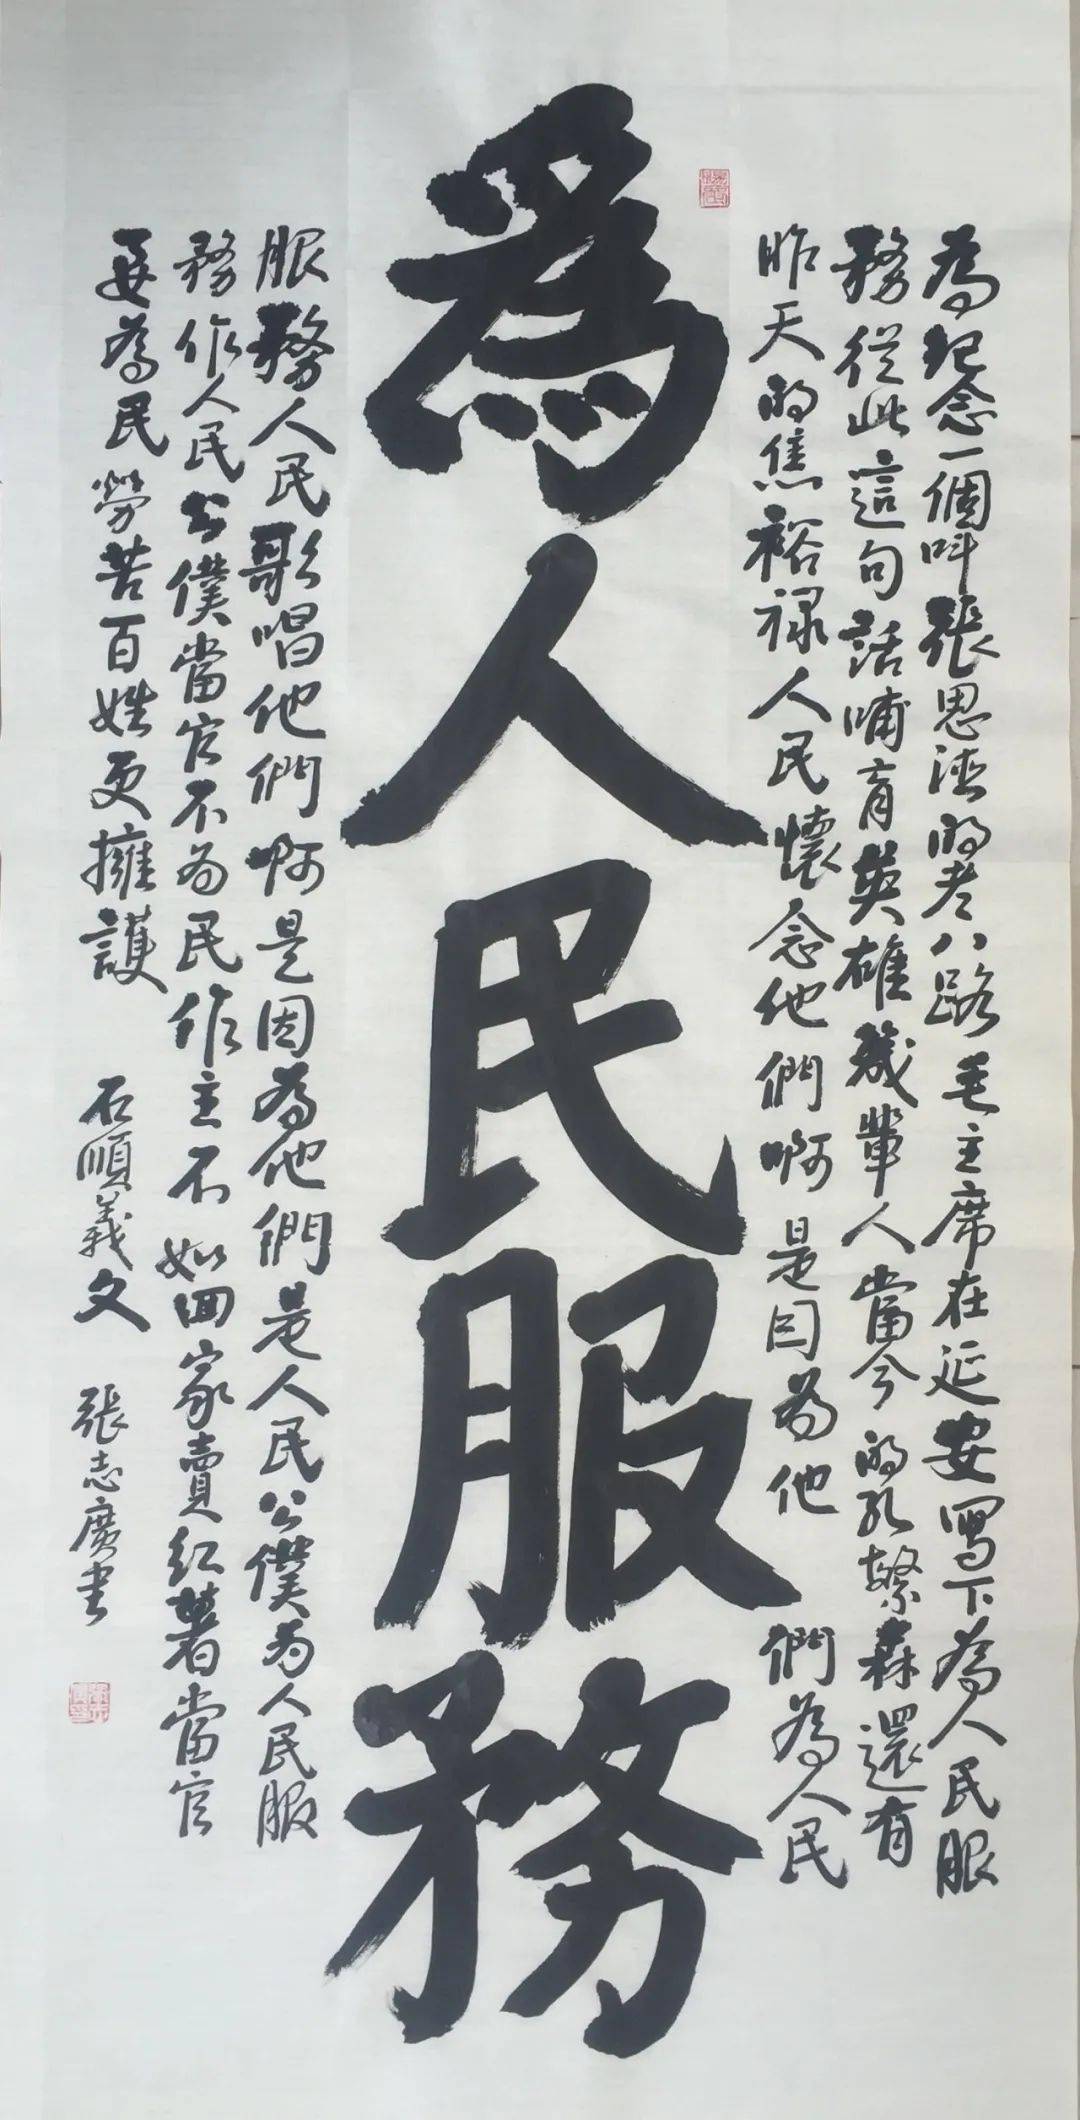 為人民服務
為紀念一個叫張思德的老八路毛主席在延安寫下為人民服
務從此這句話哺育英雄幾輩人當今的孔繁森還有
昨天的焦裕禄人民懷念他們啊是因為他們為人民
服務人民歌唱他們啊是因為他們是人民公僕為人民服
務作人民公僕當官不為民作主不如回家賣红薯當官
要為民勞苦百姓更擁護
石順義文
張志廣书